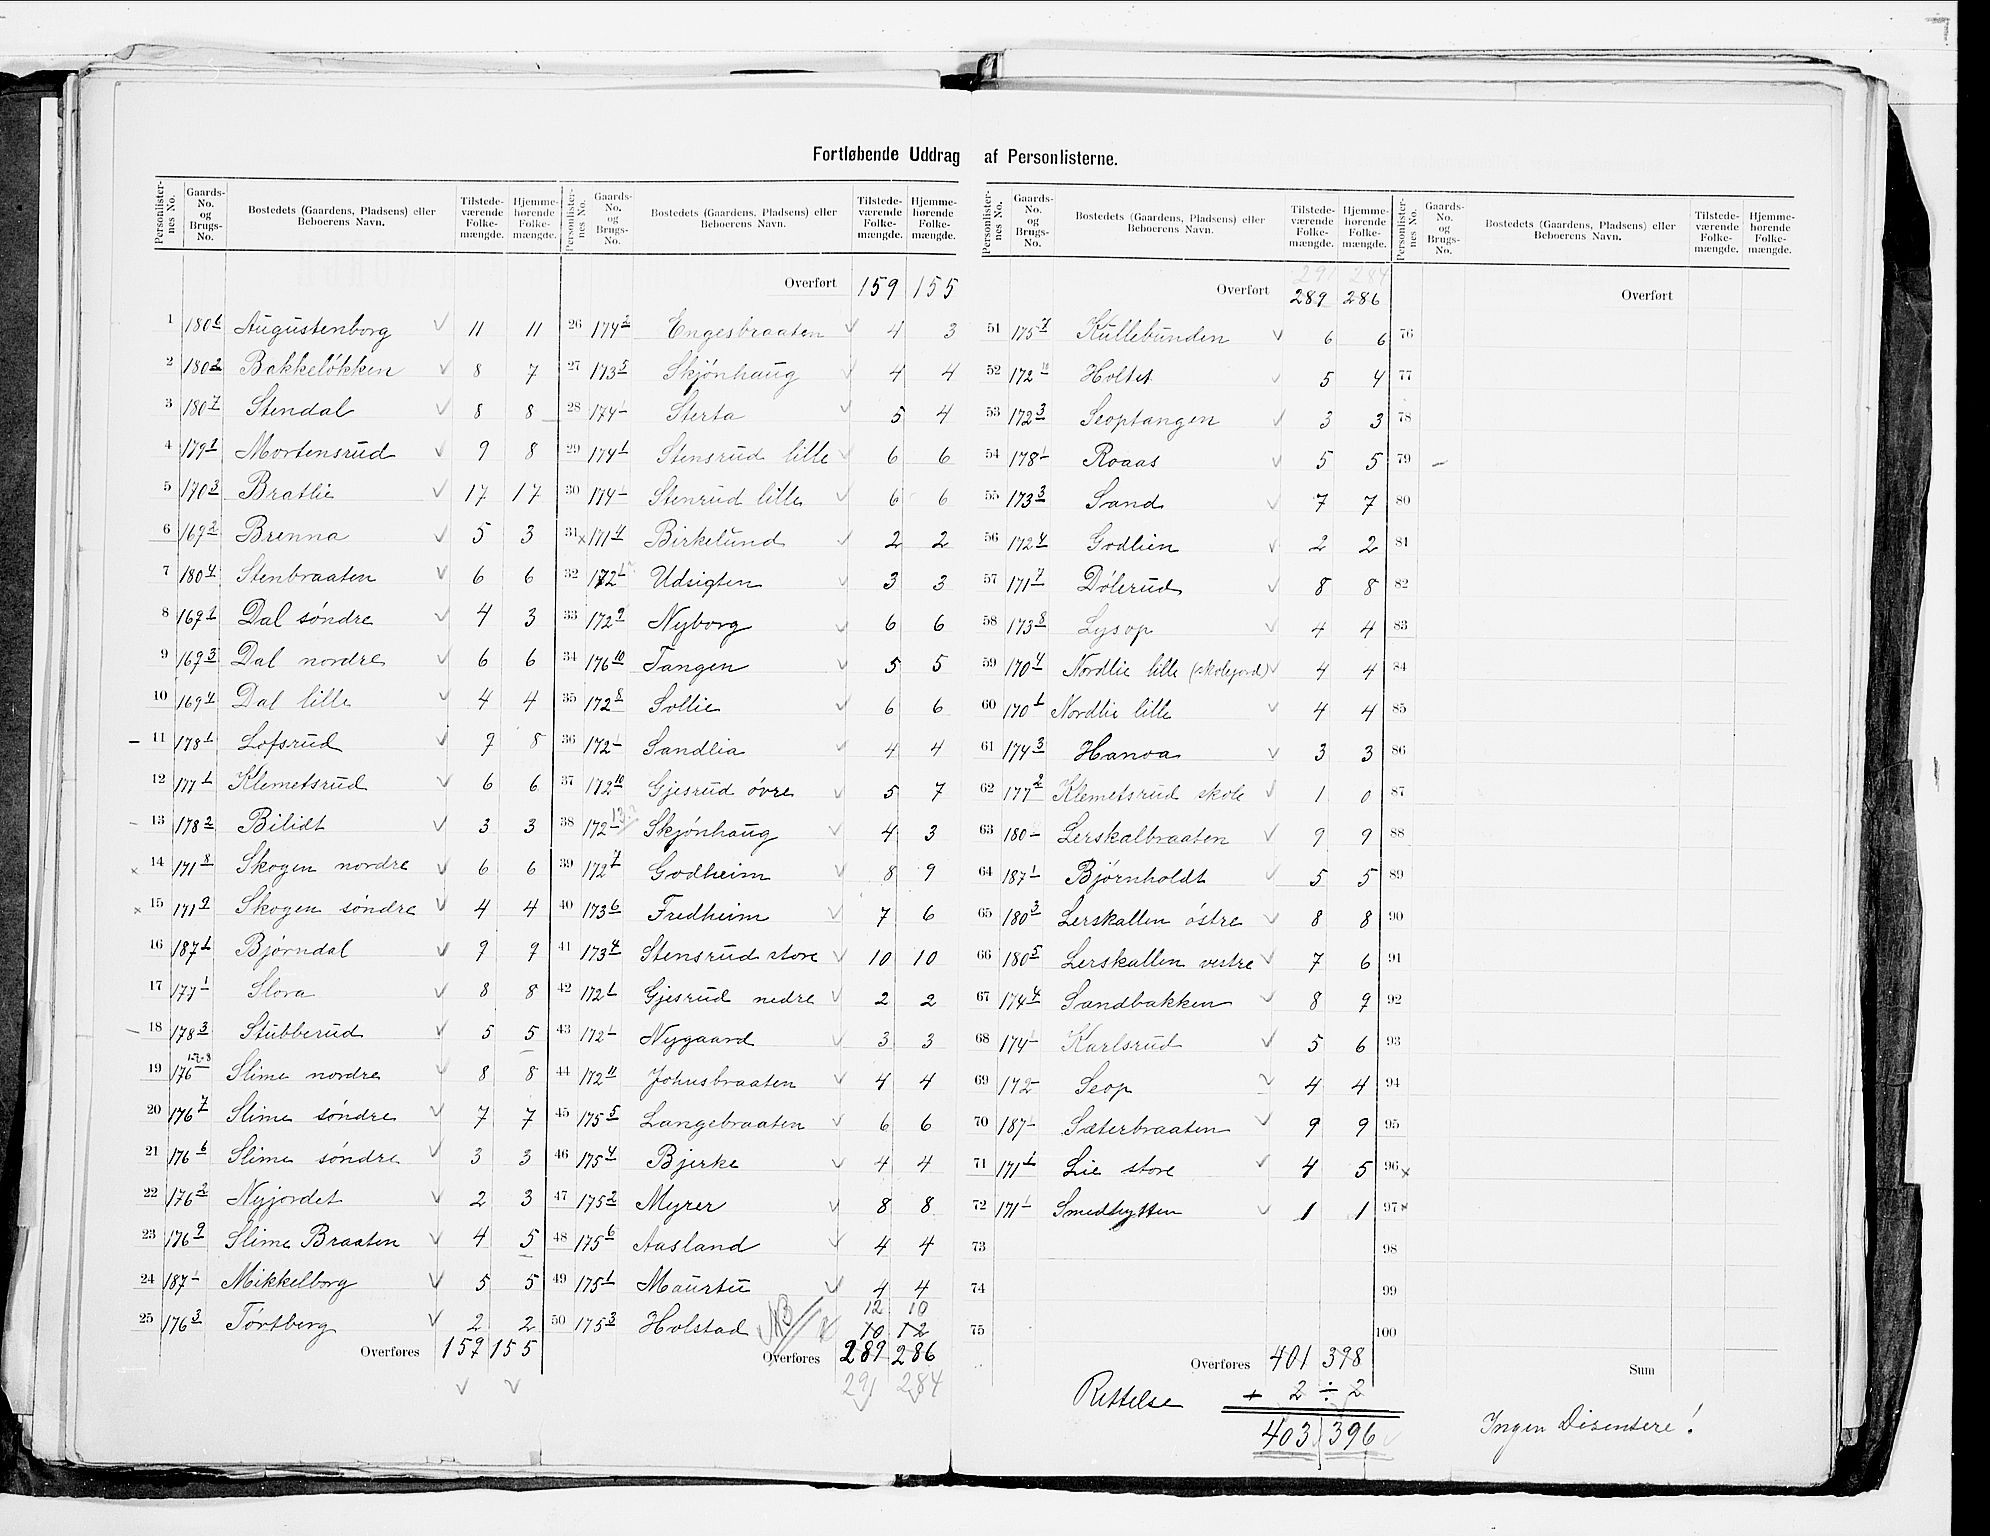 Fortløbende Uddrag af Personlisterne.
Personlister-nes No. | Gaards-No. og Brugs-No. | Bostedets (Gaardens, Pladsens) eller Beboerens Navn. | Tilstede-værende Folke-mængde. | Hjemme-hørende Folke-mængde.
1 180 6 Augustenborg 11 11
2 180 2 Bakkeløkken 8 7
3 180 7 Stendal 8 8
4 179 1 Mortensrud 9 8
5 170 3 Bratlie 17 17
6 169 2 Brenna 5 3
7 180 4 Stenbraaten 6 6
8 169 1 Dal søndre 4 3
9 169 3 Dal nordre 6 6
10 169 4 Dal lille 4 4
11 178 1 Lofsrud 9 8
12 177 1 Klemetsrud 6 6
13 178 2 Bilidt 3 3
14 171 8 Skogen nordre 6 6
15 171 9 Skogen søndre 4 4
16 187 1 Bjørndal 9 9
17 177 1 Slora 8 8
18 178 3 Stubberud 5 5
19 176 Slime nordre 8 8
20 176 7 Slime søndre 7 7
21 176 6 Slime søndre 3 3
22 176 2 Nyjordet 2 3
23 176 9 Slime Braaten 4 5
24 187 1 Mikkelborg 5 5
25 176 3 Tørtberg 2 2
Overføres 159 155
Personlister-nes No. | Gaards-No. og Brugs-No. | Bostedets (Gaardens, Pladsens) eller Beboerens Navn. | Tilstede-værende Folke-mængde. | Hjemme-hørende Folke-mængde.
Overført 159 155
26 174 2 Engesbraaten 4 3
27 173 5 Skjønhaug 4 4
28 174 1 Sterta 5 4
29 174 1 Stensrud lille 6 6
30 174 1 Stenrud lille 6 6
31 x 171 4 Birkelund 2 2
32 172 1 Udsigten 3 3
33 172 9 Nyborg 6 6
34 176 10 Tangen 5 5
35 172 8 Sollie 6 6
36 172 1 Sandlia 4 4
37 172 10 Gjesrud øvre 5 7
38 172 Skjønhaug 4 3
39 172 7 Godheim 8 9
40 173 6 Fredheim 7 6
41 173 4 Stensrud store 10 10
42 172 1 Gjesrud nedre 2 2
43 172 1 Nygaard 3 3
44 172 11 Johusbraaten 4 4
45 175 5 Langebraaten 6 6
46 175 4 Bjerke 4 4
47 175 2 Myrer 8 8
48 175 6 Aasland 4 4
49 175 1 Maurtu 4 4
12 10
50 175 3 Holstad NB 10 12
Overføres 289 286
291 284
Personlister-nes No. | Gaards-No. og Brugs-No. | Bostedets (Gaardens, Pladsens) eller Beboerens Navn. | Tilstede-værende Folke-mængde. | Hjemme-hørende Folke-mængde.
291 284
Overført 289 286
51 175 7 Kullebunden 6 6
52 172 10 Holtet 5 4
53 172 3 Seoptangen 3 3
54 178 1 Roaas 5 5
55 173 3 Sand 7 7
56 172 4 Godlien 2 2
57 171 7 Dølerud 8 8
58 173 8 Lysop 4 4
59 170 4 Nordlie lille (skolejord) 4 4
60 170 1 Nordlie lille 4 4
61 174 3 Hanoa 3 3
62 177 2 Klemetsrud skole 1 0
63 180 - Lerskalbraaten 9 9
64 187 1 Bjørnholdt 5 5
65 180 3 Lerskallen østre 8 8
66 180 5 Lerskallen vestre 7 6
67 174 4 Sandbakken 8 9
68 174 1 Karlsrud 5 6
69 172 - Seop 4 4
70 187 1 Sæterbraaten 9 9
71 171 1 Lie store 4 5
72 171 1 Smedhytten 1 1
73
74
75
Overføres 401 398
Rettelse + 2 ÷ 2
403 396
Personlister-nes No. | Gaards-No. og Brugs-No. | Bostedets (Gaardens, Pladsens) eller Beboerens Navn. | Tilstede-værende Folke-mængde. | Hjemme-hørende Folke-mængde.
Overført
76
77
78
79
80
81
82
83
84
85
86
87
88
89
90
91
92
93
94
95
96 x
97 x
98
99
100
Sum
Ingen Disentere!